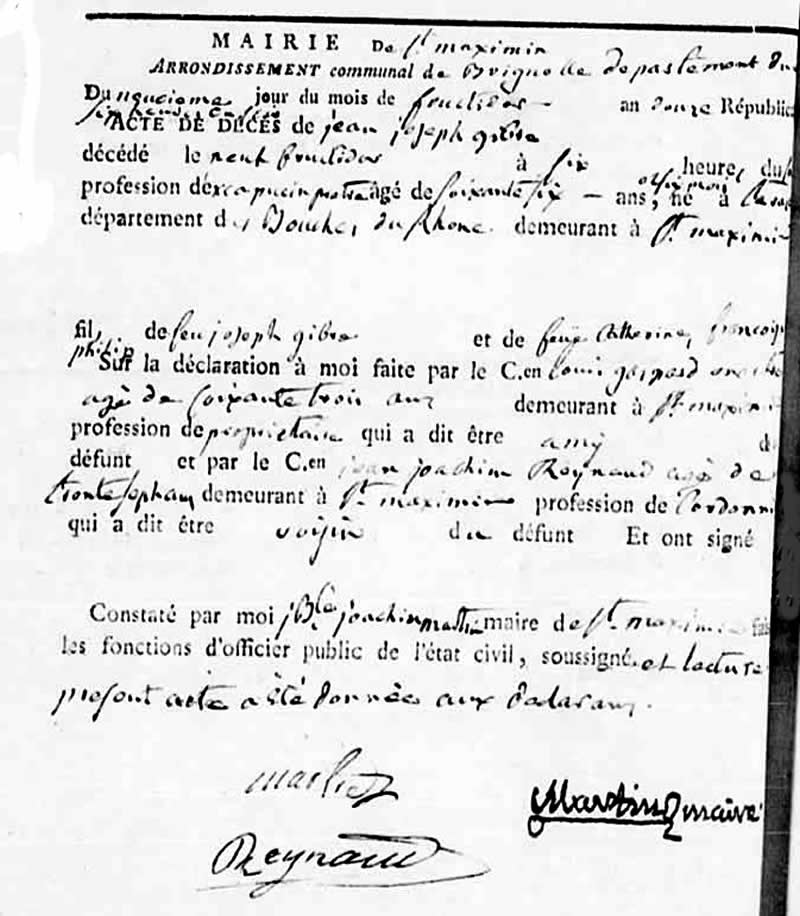 MAIRIE De St maximin
ARRONDISSEMENT communal de Brignolle departement du
Du jour du mois de fructidor an douze Républic
ACTE DE DÉCÈS de jean joseph gibre
décédé le neuf fructidor à six heures du
profession d'excapucin pretre âgé de soixante six ans, et six mois né à
département des Bouches du Rhone demeurant à St maximin
fils de feu joseph gibre et de feüe Catherine francoise
philip
Sur la déclaration à moi faite par le C.en louis gaspard
agé de soixante trois ans demeurant à St maximin
profession de proprietaire qui a dit être amy d
défunt et par le C.en jean joachim Reynaud agé de
trente sept ans demeurant à St maximin profession de Cordonni
qui a dit être voisin du défunt Et ont signé
Constaté par moi jn Bte joachim martin maire de St maximin fais
les fonctions d'officier public de l'état civil, soussigné. et lecture
present acte a été donnée aux
Reynaud
Martin maire